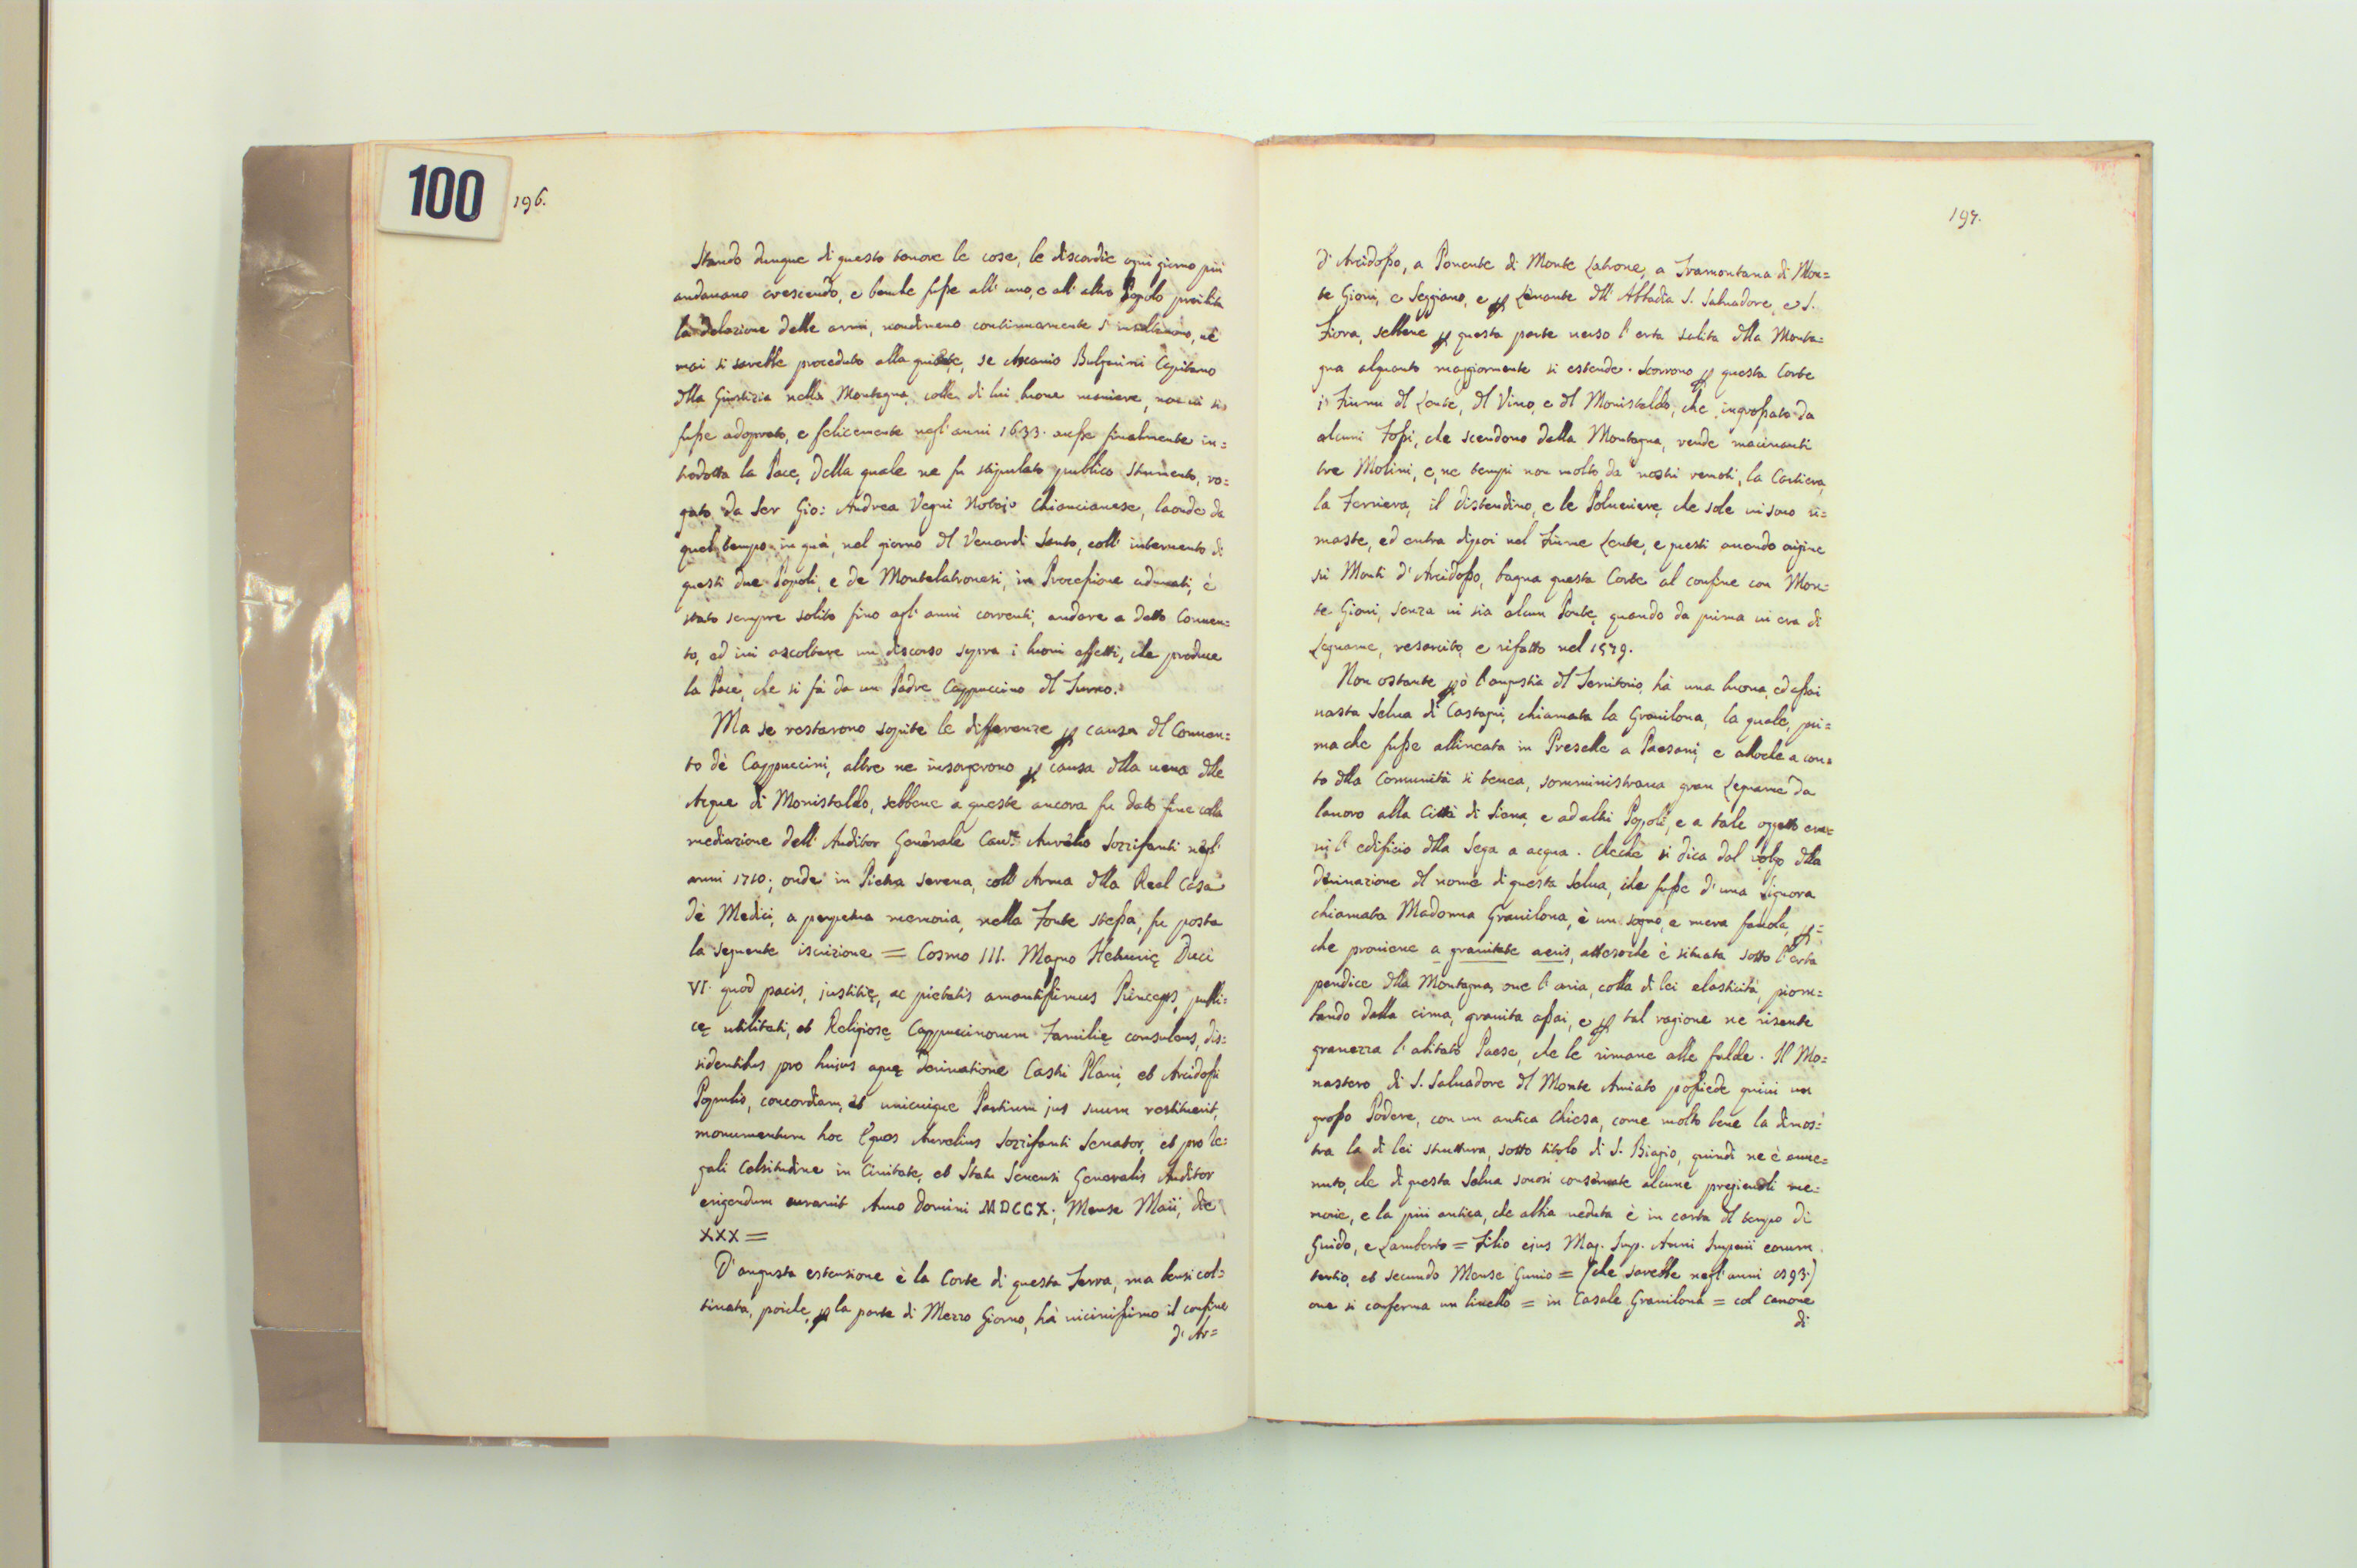 100
196.
Stando dunque di questo tenore le cose, le discordie ogni giorno più
andavano crescendo, e benche fuſse all' uno, e all' altro Popolo proibita
la delazione delle armi, nondimeno continuamente s' insultavano, nè
mai si sarebbe proceduto alla quiete, se Ascanio Bulgarini Capitano
dlla Giustizia nella Montagna, colle di lui buone maniere, non vi si
fuſse adoprato, e felicemente negl' anni 1633. aveſse finalmente in=
trodotta la Pace, della quale ne fu stipulato publico strumento, ro=
gato da Ser Gio: Andrea Vegni Notajo Chiancianese, laonde da
quel tempo in quà, nel giorno dl Venardi Santo, coll' intervento di
questi due Popoli, e de Montelatronesi, in Proceſsione adunati, è
stato sempre solito fino agl' anni correnti, andare a detto Conven=
to, ed ivi ascoltare un discorso sopra i buoni effetti, che produce
la Pace, che si fà da un Padre Cappuccino dl Surreo.
Ma se restarono sopite le differenze ꝑ causa dl Conven=
to dè Cappuccini, altre ne insorgerono ꝑ causa dlla vena dlle
Acque di Monistaldo, sebbene a queste ancora fu dato fine colla
mediazione dell' Auditor Generale Cav.re Aurelio Sozzifanti negl'
anni 1710; onde in Pietra serena, coll' Arma dlla Real Casa
dè Medici, a perpetua memoria, nella Fonte steſsa, fu posta
la seguente iscrizione = Cosmo III. Magno Hetrurię Duci
VI. quod pacis, justitię, ac pietatis amantiſsimus Princeps, publi=
cę utilitati, et Religiosę Cappuccinorum Familię consulens, dis=
sidentibus pro hujus aquę derivatione Castri Plani, et Arcidoſsi
Populis, concordiam, et unicuique Partium jus suum restituerit,
monumentum hoc Eques Aurelius Sozzifanti Senator, et pro Re=
gali Celsitudine in Civitate, et Statu Senensi Generalis Auditor
erigendum curavit Anno Domini MDCCX; Mense Maii, die
XXX =
D' angusta estensione è la Corte di questa Terra, ma bensi col=
tivata, poiche, ꝑ la parte di Mezzo Giorno, hà viciniſsimo il confine
d' Ar=
197.
d' Arcidoſso, a Ponente di Monte Latrone, a Tramontana di Mon=
te Gioni, e Seggiano, e ꝑ Levante dll' Abbadia S. Salvadore, e S.
Fiora, sebbene ꝑ questa parte verso l' erta salita dlla Monta=
gna alquanto maggiormente si estende. Scorrono ꝑ questa Corte
i Fiumi dl Lente, dl Vivo, e dl Monistaldo, che ingroſsato da
alcuni Foſsi, che scendono dalla Montagna, rende macinanti
tre Molini, e, ne tempi non molto da nostri remoti, la Cartiera,
la Ferriera, il Distendino, e le Polveriere, che sole vi sono ri=
maste, ed entra dipoi nel Fiume Lente, e questi avendo origine
su Monti d' Arcidoſso, bagna questa Corte al confine con Mon=
te Gioni, senza vi sia alcun Ponte, quando da prima vi era di
Legname, resarcito, e rifatto nel 1579.
Non ostante ꝑò l' angustia dl Territorio, hà una buona, ed aſsai
vasta Selva di Castagni, chiamata la Gravilona, la quale, pri=
ma che fuſse allineata in Preselle a Paesani, e allorche a con=
to dlla Comunità si tenea, somministrava gran Legname da
lavoro alla Città di Siena, e ad altri Popoli, e a tale oggetto era=
vi l' edificio dlla Sega a acqua. Checchè si dica dal volgo dlla
derivazione dl nome di questa Selva, che fuſse d' una Signora
chiamata Madonna Gravilona, è un sogno, e mera favola, ꝑ=
che proviene a gravitate aeris, attesoche è situata sotto l' erta
pendice dlla Montagna, ove l' aria, colla di lei elasticità, piom=
bando dalla cima, gravita aſsai, e ꝑ tal ragione ne risente
gravezza l' abitato Paese, che le rimane alle falde. Il Mo=
nastero di S. Salvadore dl Monte Amiato poſsiede quivi un
groſso Podere, con un antica Chiesa, come molto bene la dimos=
tra la di lei struttura, sotto titolo di S. Biagio, quindi ne è avve=
nuto, che di questa Selva sonosi conservate alcune pregievoli me=
morie, e la più antica, che abbia veduta è in carta dl tempo di
Guido, e Lamberto = Filio ejus Mag. Imp. Anni Imperii eorum
tertio, et secundo Mense Junio = (che sarebbe negl' anni 893.)
ove si conferma un livello = in Casale Gravilona = col canone
di